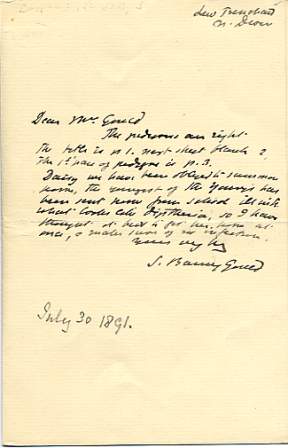 Lew Trenchard
N. Devon
Dear Mr Gould
The pedigrees are right.
The title is p. 1. next sheet blank 2.
The 1st page of pedigree is p. 3.
Daisy we have been obliged to summon
home, the youngest of the Youngs has
been sent home from school ill with
what looks like diphtheria, so I have
thought it best to get her home at
once, & make sure of no infection.
Yours very truly
S. Baring Gould
July 30 1891.